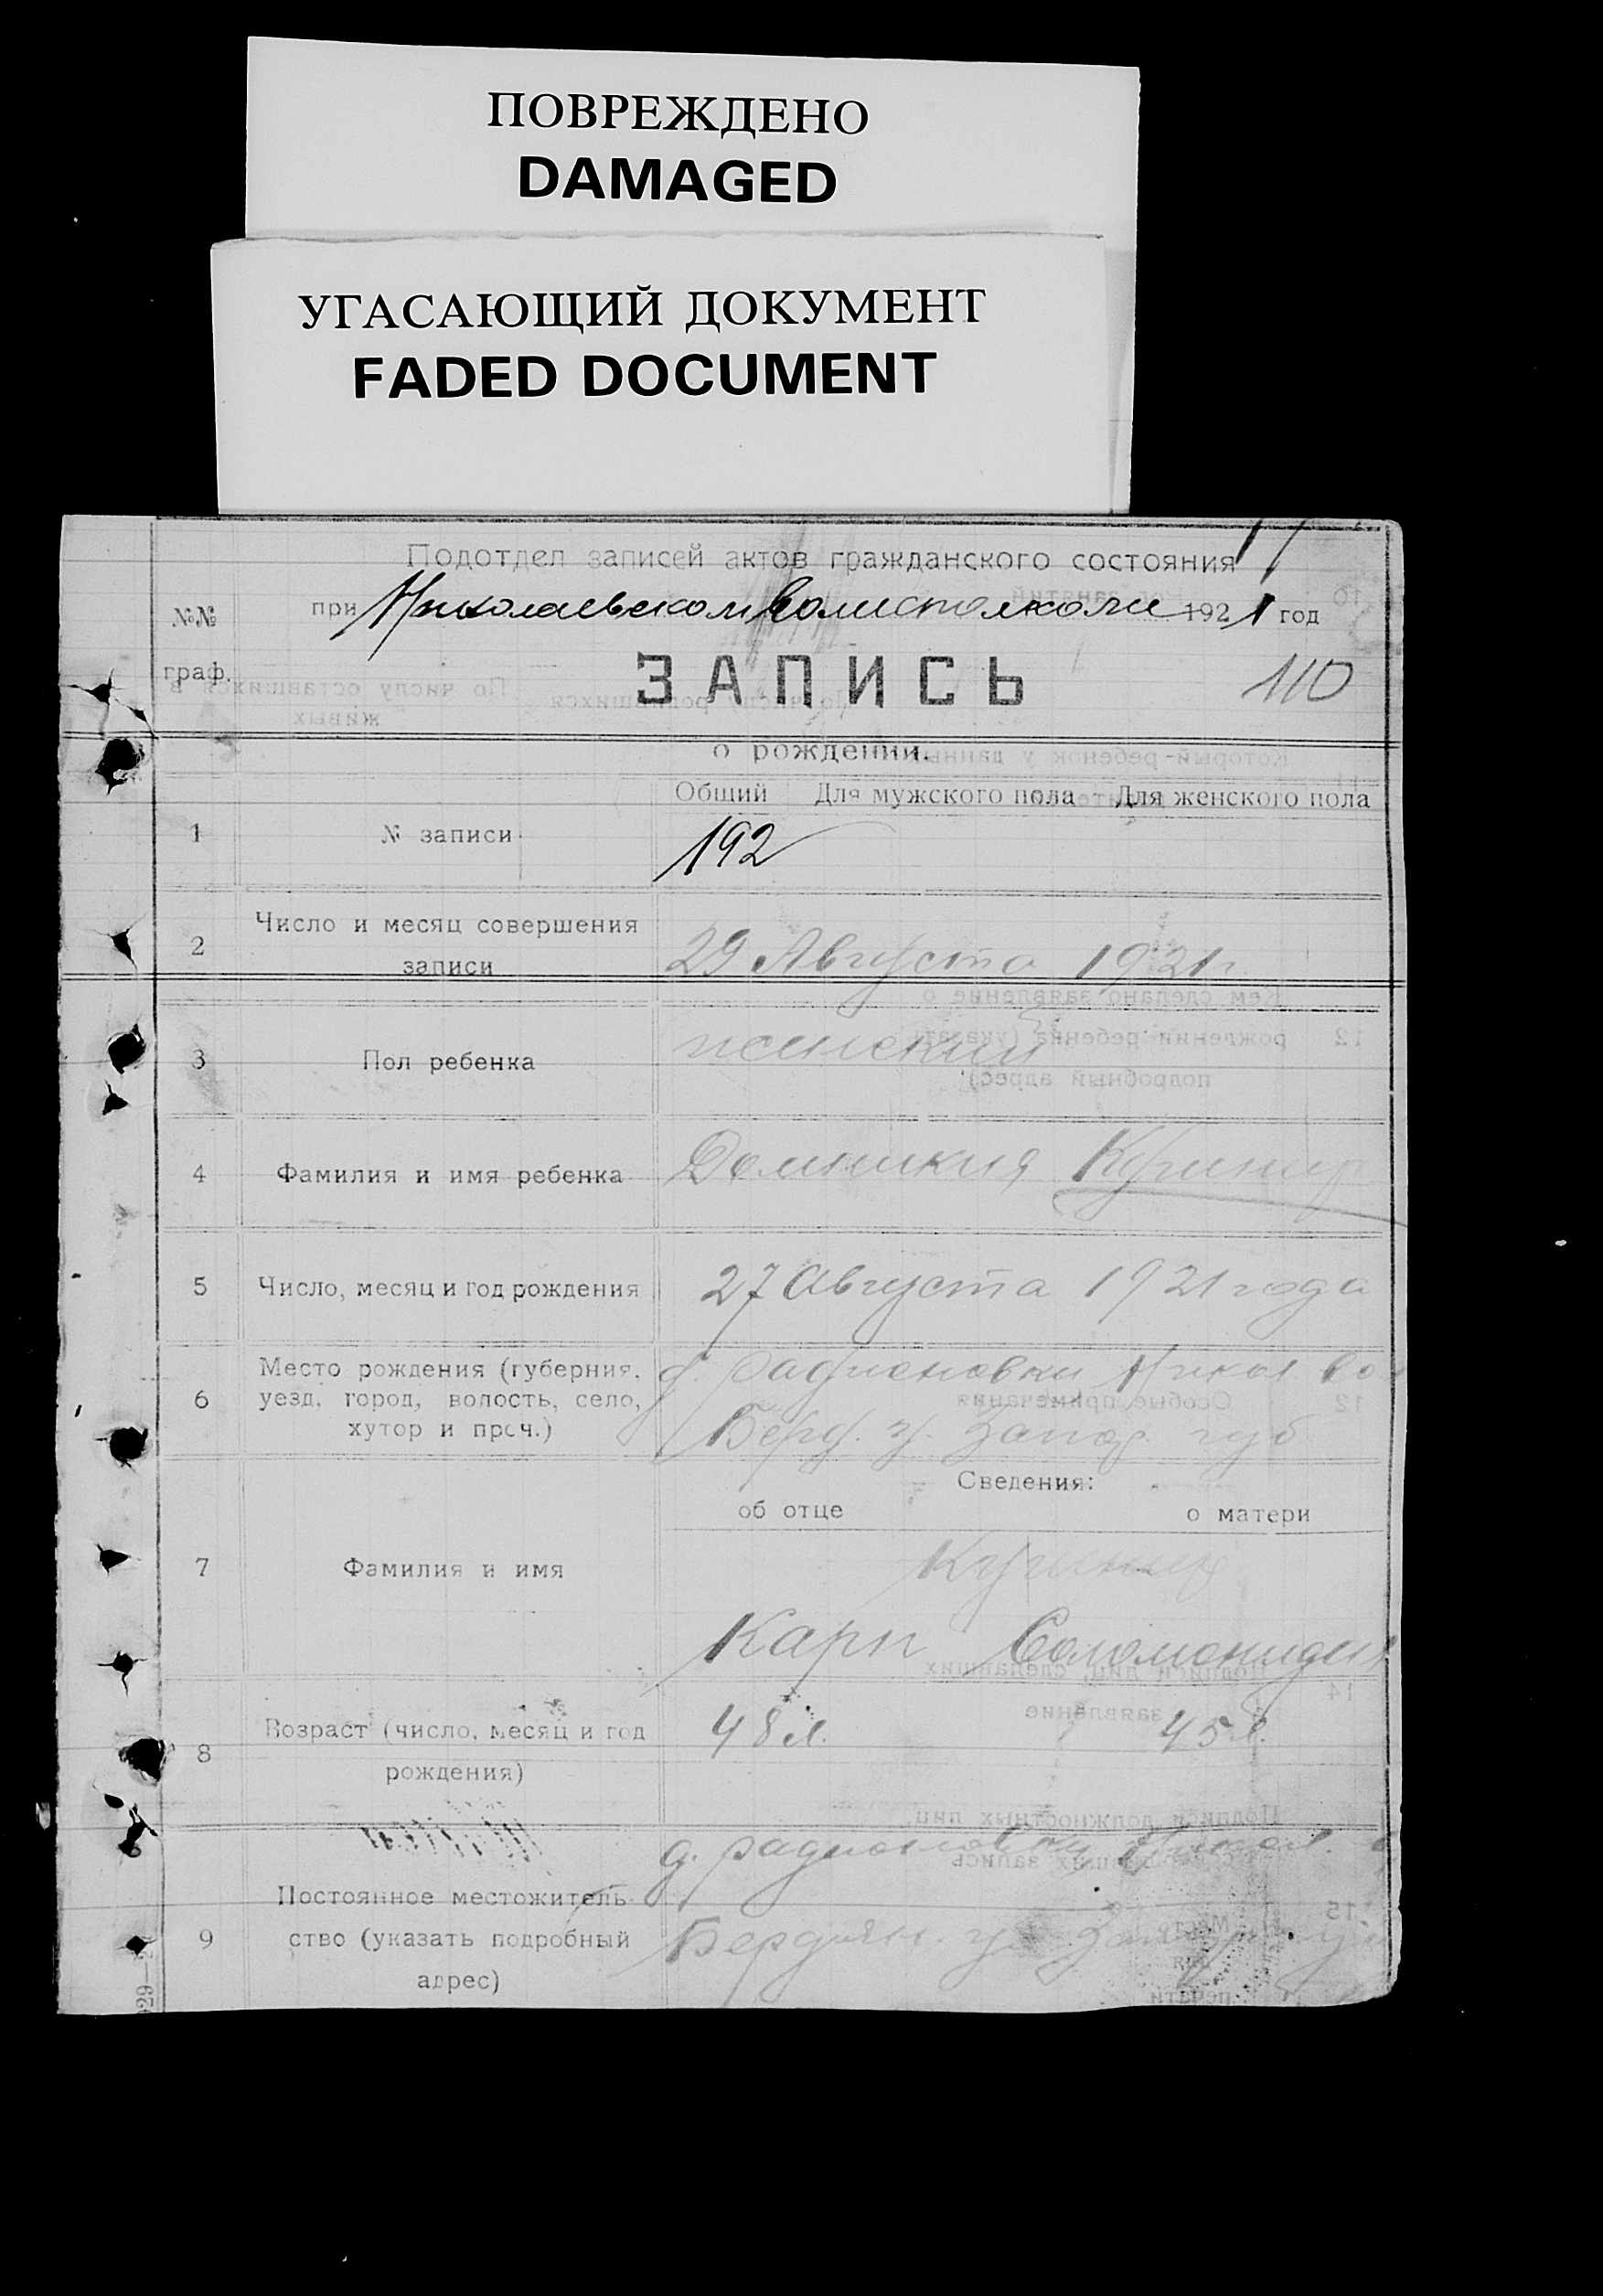 ПОВРЕЖДЕНО
DAMAGED
УГАСАЮЩИЙ ДОКУМЕНТ
FADED DOCUMENT
Подотдел записей актов гражданского состояния
при Николаевском 1921 год
№№ граф.
ЗАПИСЬ
110
о рождении.
Общий Для мужского пола Для женского пола
1 № записи 192
2 Число и месяц совершения
записи 29 Августа 1921 г
3 Пол ребенка женский
4 Фамилия и имя ребенка
5 Число, месяц и год рождения 27 Августа 1921 года
6 Место рождения (губерния,
уезд, город, волость, село,
хутор и проч.)
д. Радионовки Никол во
Берд. у. Запор. губ
Сведения:
об отце о матери
7 Фамилия и имя
Карп Соломонидия
8 Возраст (число, месяц и год
рождения)
48 л. 45 л.
9 Постоянное местожитель-
ство (указать подробный
адрес)
д. Радионовки Никол.
Бердян. у.